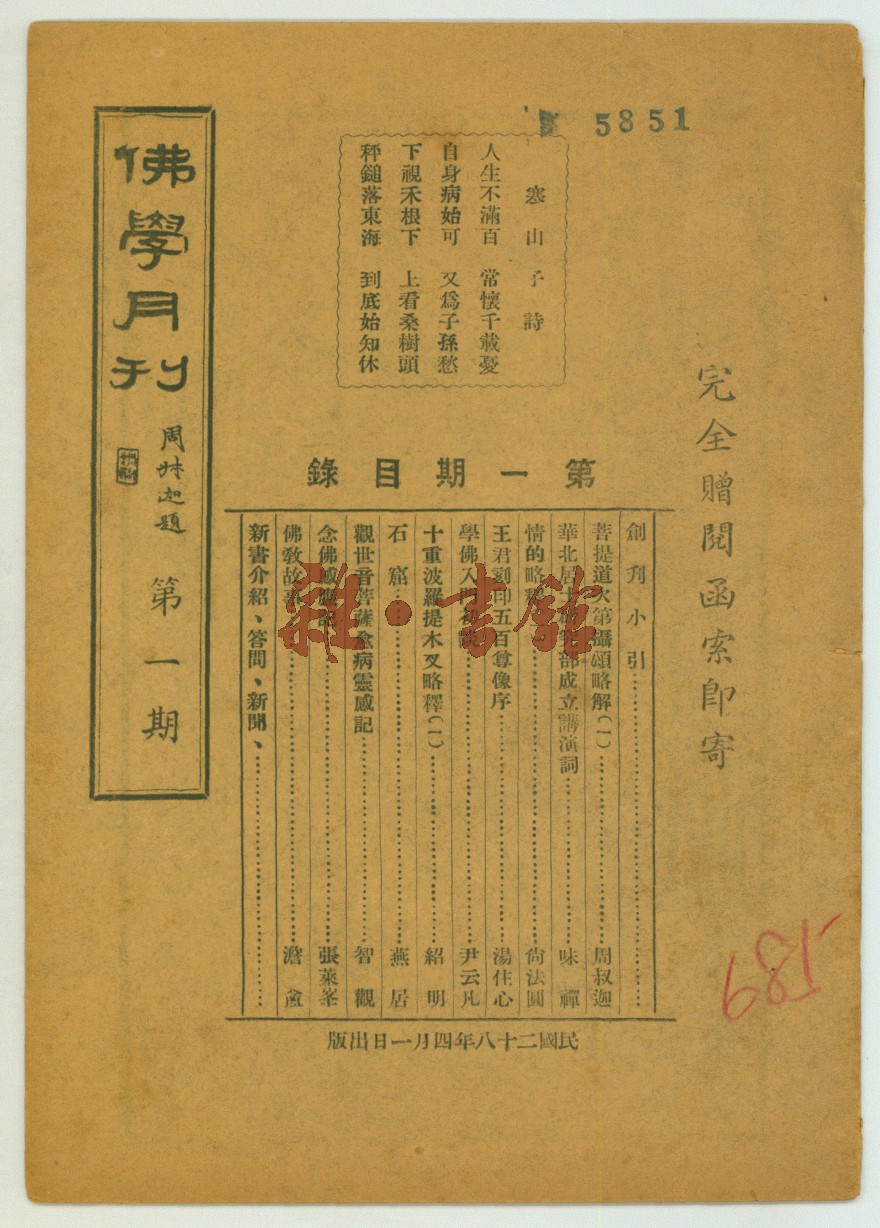 5851
寒山子詩
人生不滿百　常懷千載憂
自身病始可　又爲子孫愁
下視禾根下　上看桑樹頭
秤鎚落東海　到底始知休
完全贈閱函索卽寄
佛學月刊
周叔迦題
第一期
第一期目錄
創刋小引……
菩提道次第攝頌略解(一)……周叔迦
華北居士林 部成立講演詞……味禪
情的略釋……尙法圓
王君刻印五百尊像序……湯住心
學佛入門初 ……尹云凡
十重波羅提木叉略釋(一)……紹明
石窟……燕居
觀世音菩薩愈病靈感記……智觀
念佛感應記……張萊峯
佛敎故事……澹盦
新書介紹、答問、新聞、……
民國二十八年四月一日出版
685
雜·書館